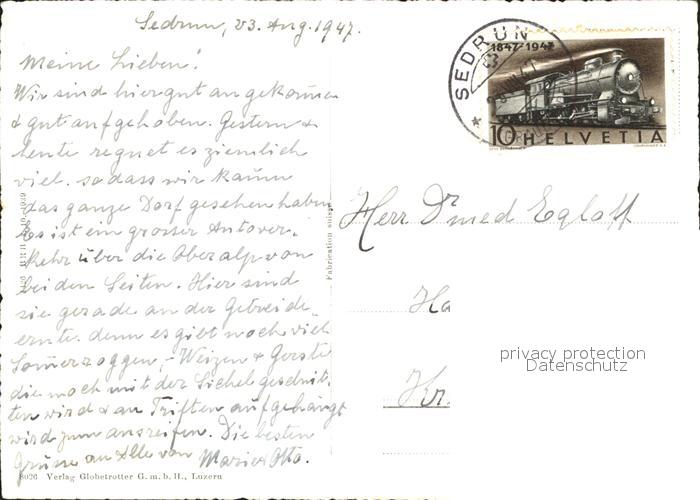 Sedrun, 23. Aug. 1947.
Meine Lieben!
Wir sind hier gut angekommen
& gut aufgehoben. Gestern &
heute regnet es ziemlich
viel. sodass wir kaum
das ganze Dorf gesehen haben
Es ist ein grosser Autover-
kehr über die Oberalp von
beiden Seiten. Hier sind
sie gerade an der Getreide-
ernte. denn es gibt noch viel
Somerroggen, - Weizen & Gerste
die noch mit der Sichel geschnit-
ten wird & an Tristen aufgehängt
wird zum ausreifen. Die besten
Grüsse an Alle von Marie & Otto.
8026 Verlag Globetrotter G.m.b.H., Luzern
Fabrication suisse
SEDRUN
1847-1947
10 HELVETIA
Herr Dr med Egloff
Ha
Kr.
privacy protection
Datenschutz